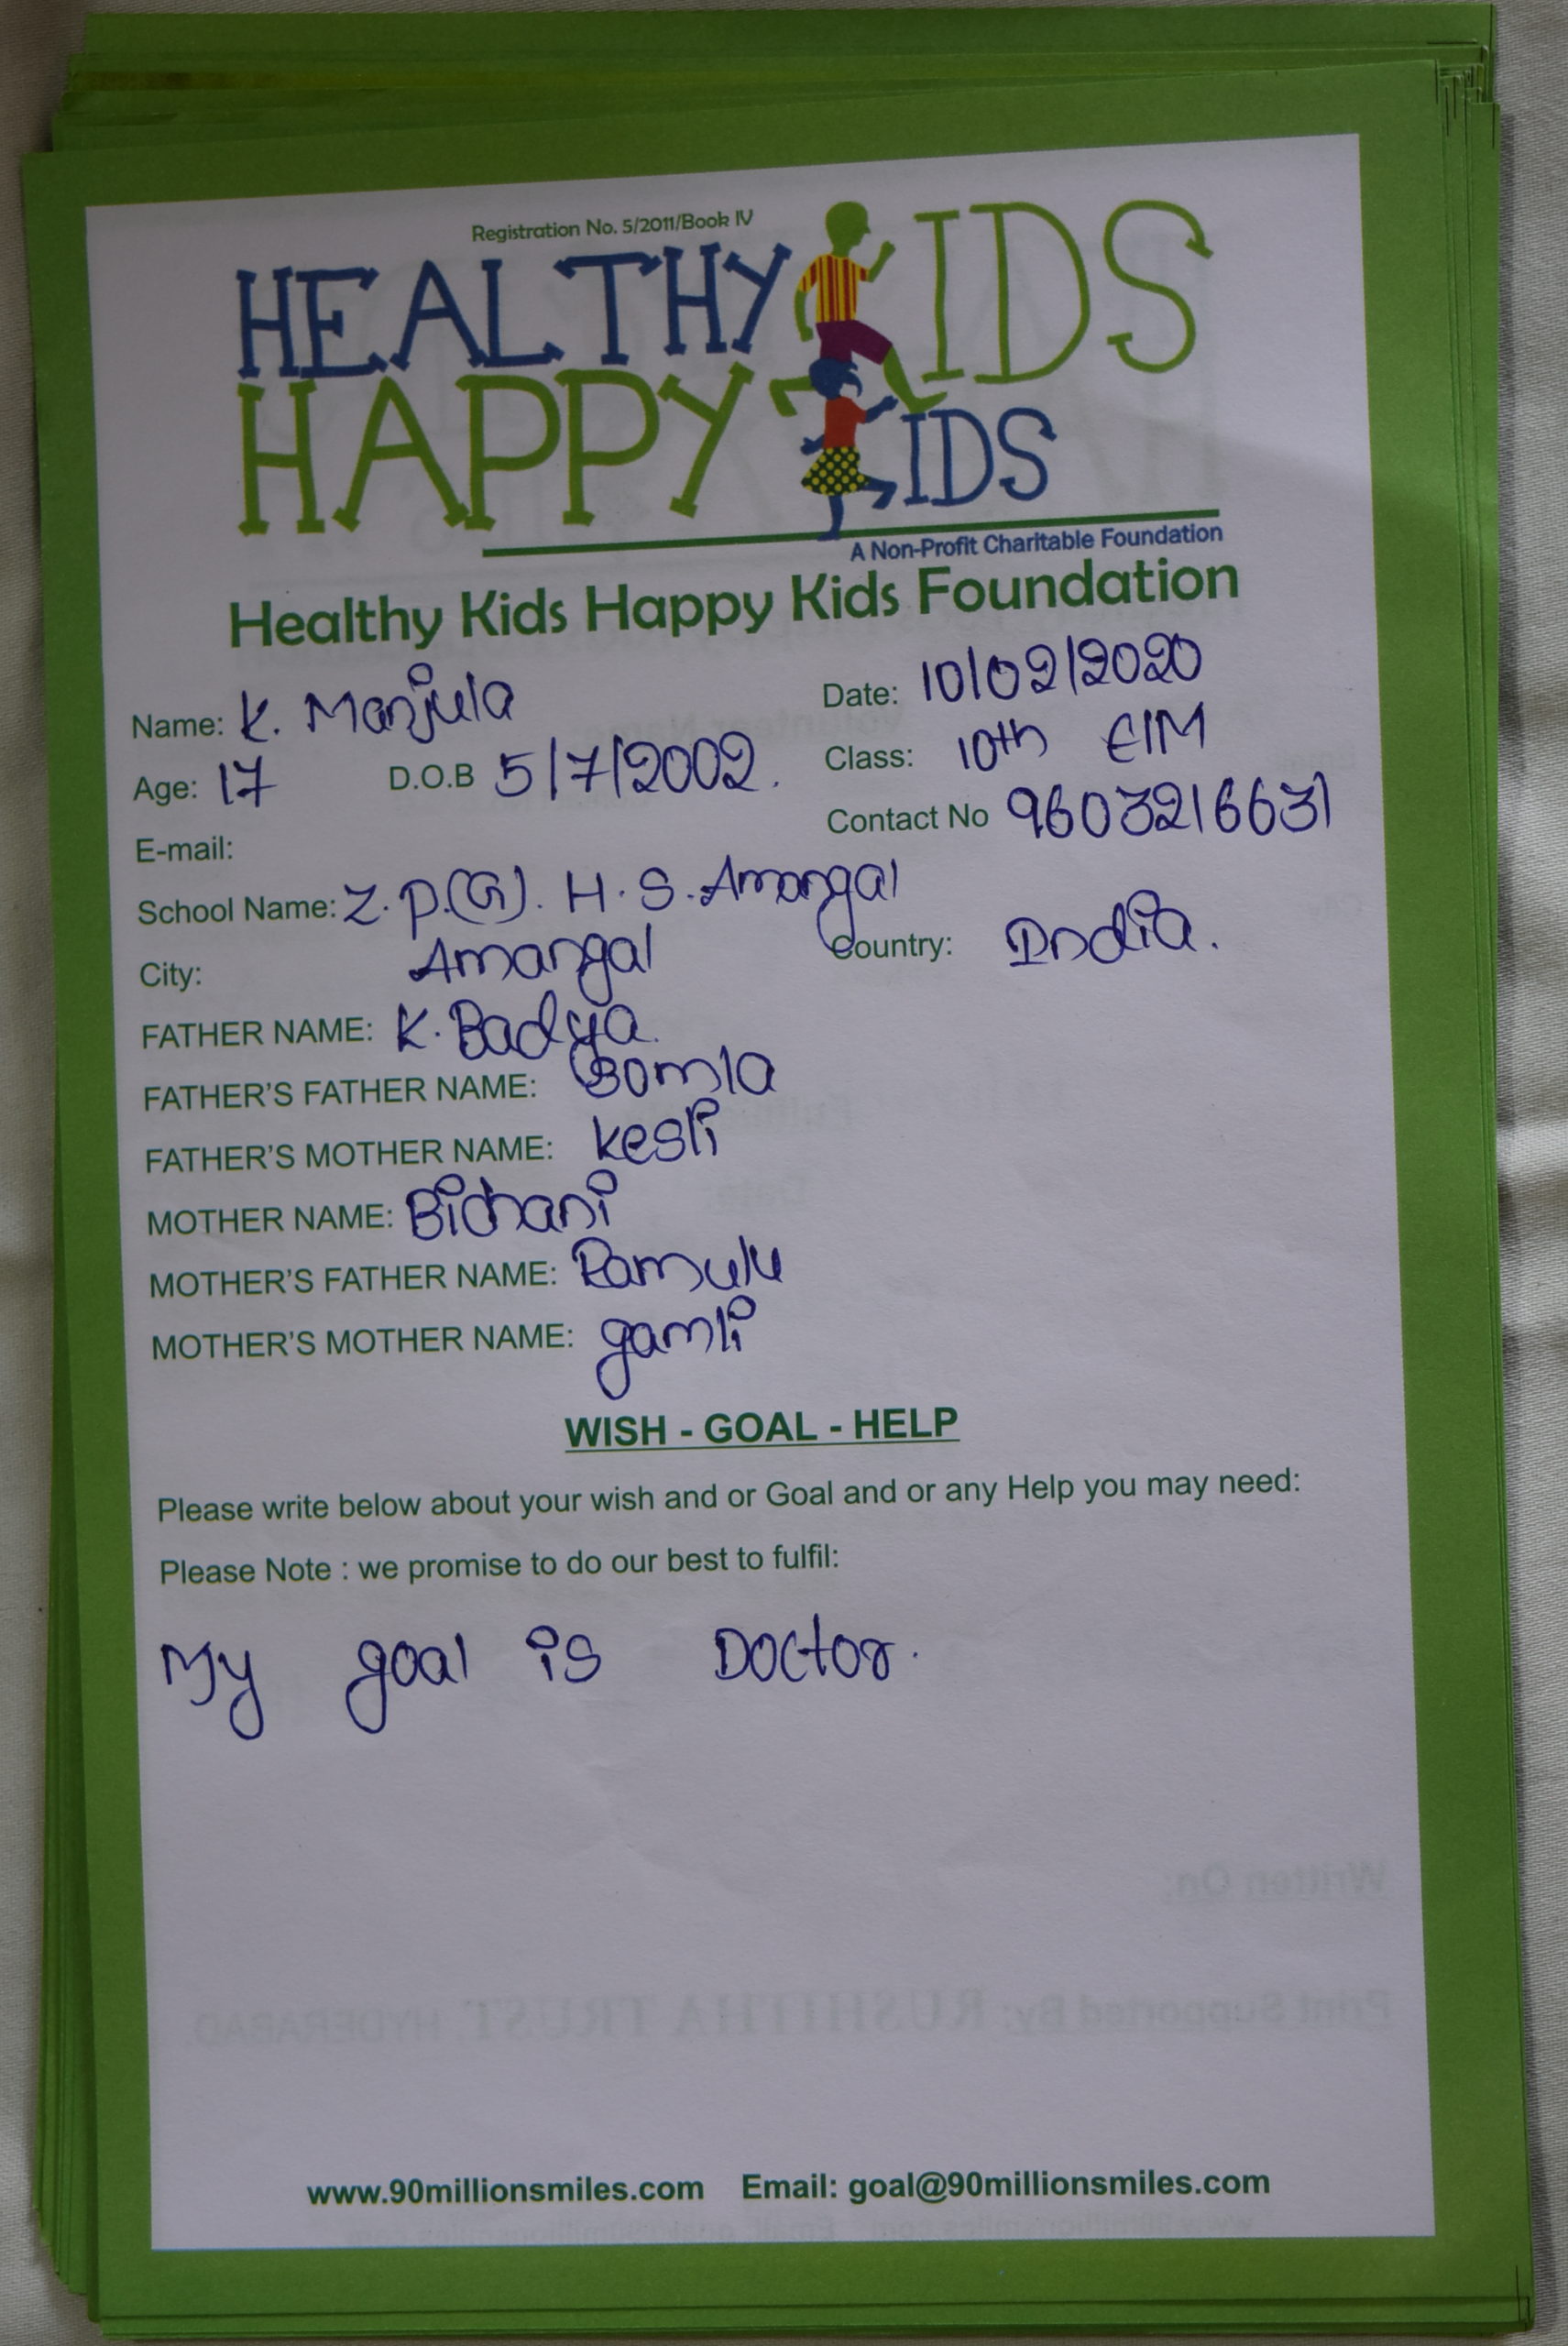 Registration No. 5/2011/Book IV
HEALTHY KIDS
HAPPY KIDS
A Non-Profit Charitable Foundation
Healthy Kids Happy Kids Foundation
Name: K. Manjula Date: 10/02/2020
Age: 17 D.O.B 5/7/2002. Class: 10th E/M
E-mail: Contact No 9603216631
School Name: Z. P.(G). H. S. Amangal
City: Amangal Country: India.
FATHER NAME: K. Badya
FATHER'S FATHER NAME: Bomla
FATHER'S MOTHER NAME: kesli
MOTHER NAME: Bichani
MOTHER'S FATHER NAME: Ramulu
MOTHER'S MOTHER NAME: gamli
WISH - GOAL - HELP
Please write below about your wish and or Goal and or any Help you may need:
Please Note : we promise to do our best to fulfil:
My goal is Doctor.
Written On:
Print Supported By: RUSHITHA TRUST, HYDERABAD.
www.90millionsmiles.com Email: goal@90millionsmiles.com